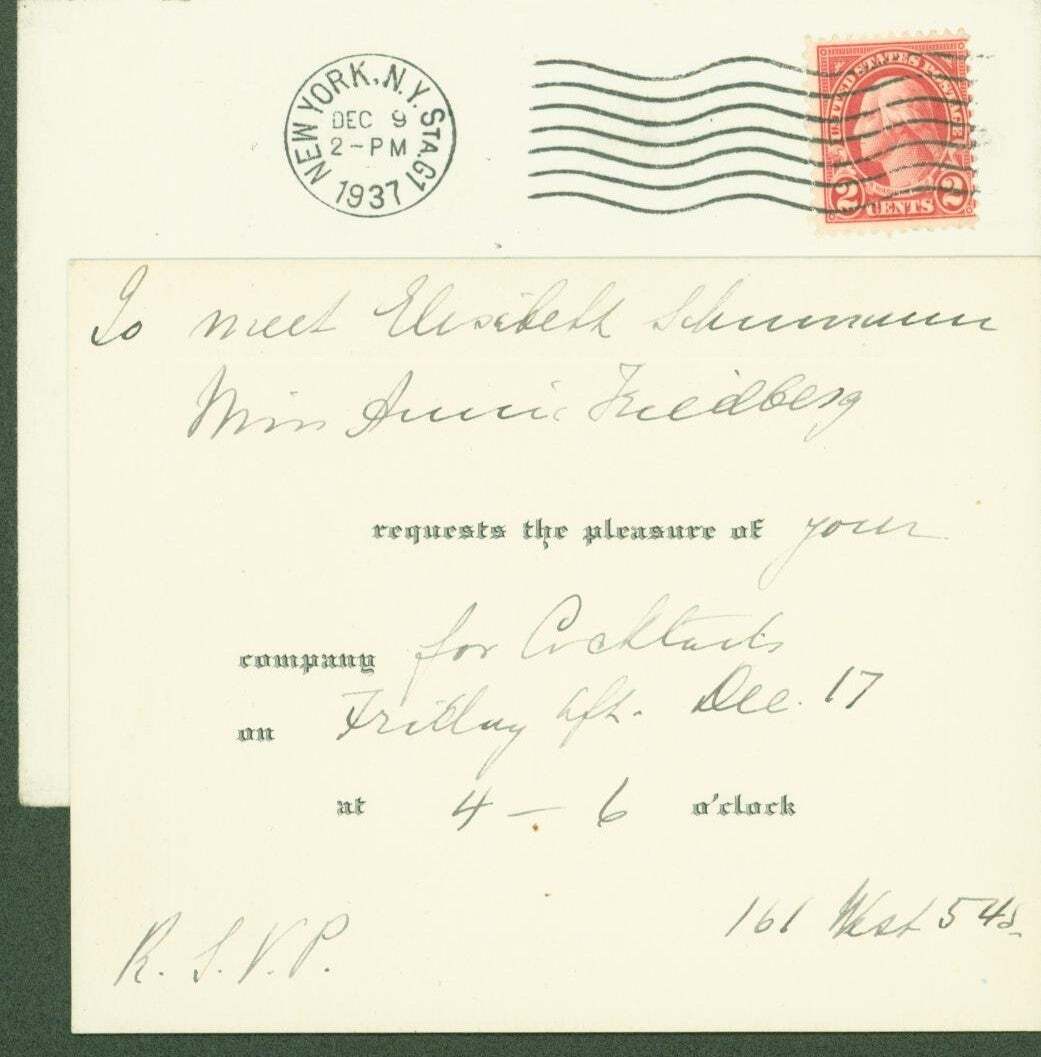 NEW YORK, N.Y. STA.G1
DEC 9
2-PM
1937
UNITED STATES POSTAGE
2 CENTS 2
To meet Elisabeth Schumann
Miss Annie Friedberg
requests the pleasure of your
company for Cocktails
on Friday aft. Dec. 17
at 4 – 6 o'clock
R. S. V. P.
161 West 54 S.